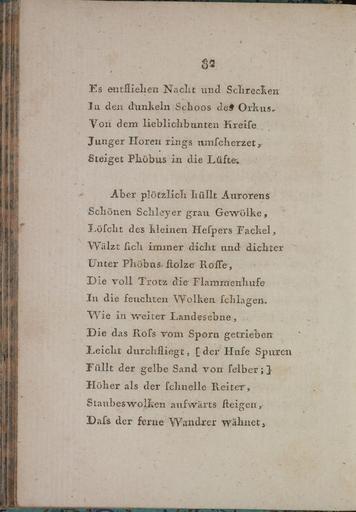 82
Es entfliehen Nacht und Schrecken
In den dunkeln Schoos des Orkus.
Von dem lieblichbunten Kreise
Junger Horen rings umscherzet,
Steiget Phöbus in die Lüfte.
Aber plötzlich hüllt Aurorens
Schönen Schleyer grau Gewölke,
Löscht des kleinen Hespers Fackel,
Wälzt sich immer dicht und dichter
Unter Phöbus stolze Rosse,
Die voll Trotz die Flammenhufe
In die feuchten Wolken schlagen.
Wie in weiter Landesebne,
Die das Ross vom Sporn getrieben
Leicht durchfliegt, [der Hufe Spuren
Füllt der gelbe Sand von selber;]
Höher als der schnelle Reiter,
Staubeswolken aufwärts steigen,
Dass der ferne Wandrer wähnet,